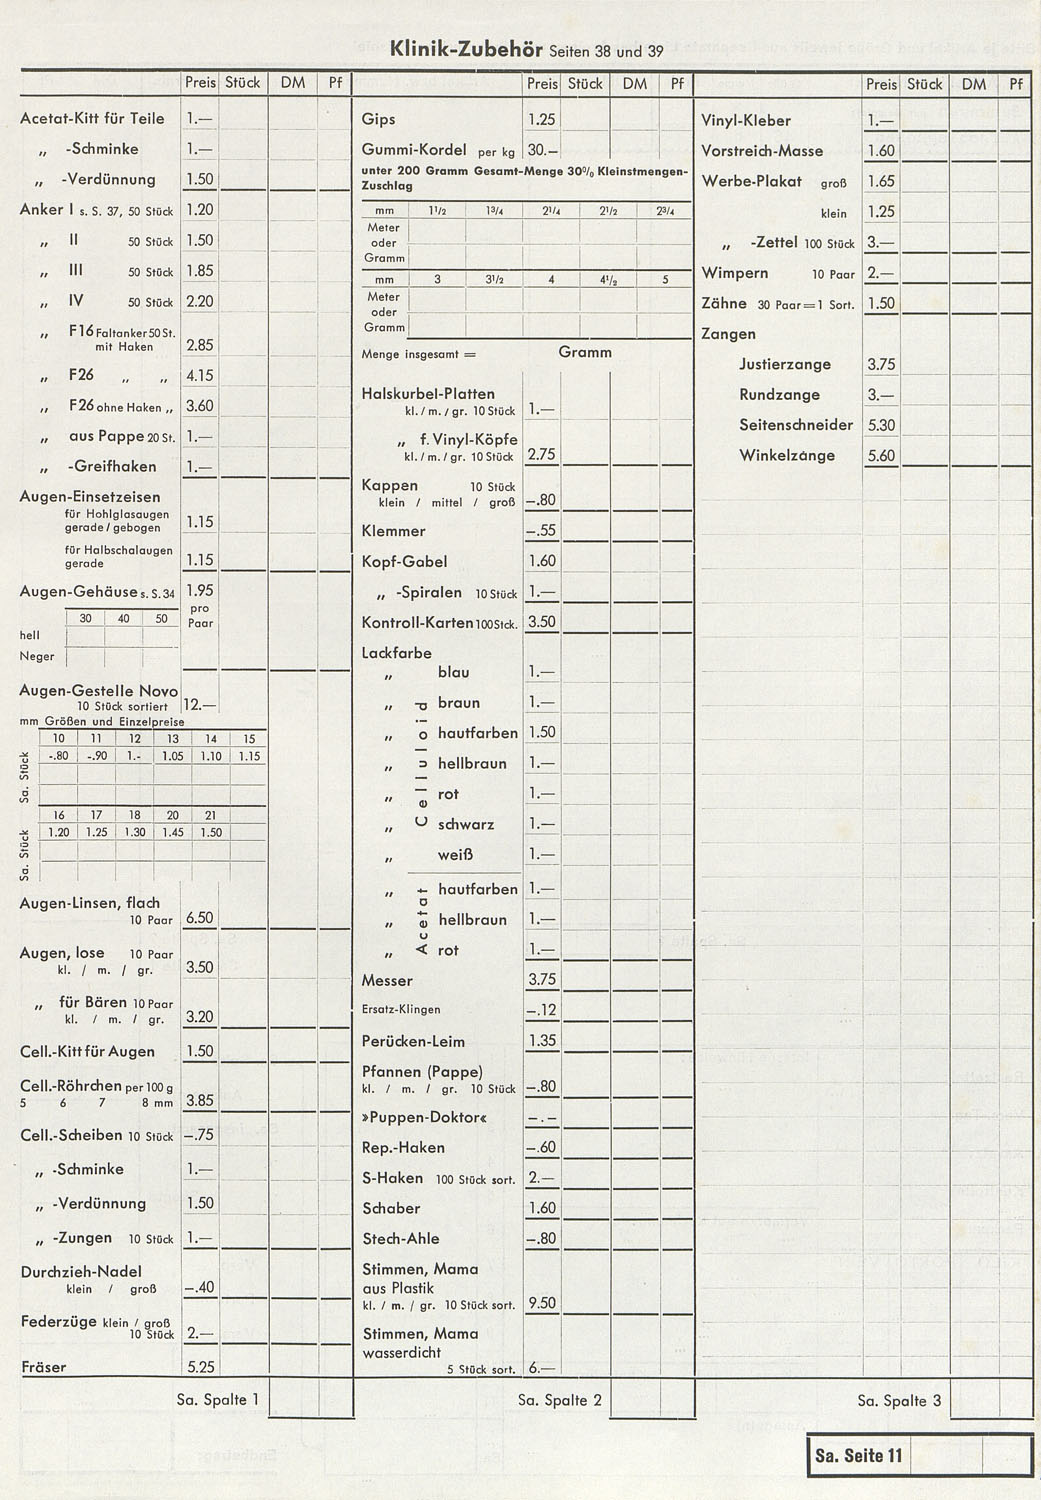 Klinik-Zubehör Seiten 38 und 39
Preis Stück DM Pf
Acetat-Kitt für Teile 1.—
„ -Schminke 1.—
„ -Verdünnung 1.50
Anker I s. S. 37, 50 Stück 1.20
„ II 50 Stück 1.50
„ III 50 Stück 1.85
„ IV 50 Stück 2.20
„ F16 Faltanker 50 St.
mit Haken 2.85
„ F26 „ „ 4.15
„ F26 ohne Haken „ 3.60
„ aus Pappe 20 St. 1.—
„ -Greifhaken 1.—
Augen-Einsetzeisen
für Hohlglasaugen
gerade / gebogen 1.15
für Halbschalaugen
gerade 1.15
Augen-Gehäuse s. S. 34 1.95
pro
Paar
30 40 50
hell
Neger
Augen-Gestelle Novo
10 Stück sortiert 12.—
mm Größen und Einzelpreise
10 11 12 13 14 15
-.80 -.90 1.- 1.05 1.10 1.15
Sa. Stück
16 17 18 20 21
1.20 1.25 1.30 1.45 1.50
Sa. Stück
Augen-Linsen, flach
10 Paar 6.50
Augen, lose 10 Paar
kl. / m. / gr. 3.50
„ für Bären 10 Paar
kl. / m. / gr. 3.20
Cell.-Kitt für Augen 1.50
Cell.-Röhrchen per 100 g
5 6 7 8 mm 3.85
Cell.-Scheiben 10 Stück —.75
„ -Schminke 1.—
„ -Verdünnung 1.50
„ -Zungen 10 Stück 1.—
Durchzieh-Nadel
klein / groß —.40
Federzüge klein / groß
10 Stück 2.—
Fräser 5.25
Sa. Spalte 1
Preis Stück DM Pf
Gips 1.25
Gummi-Kordel per kg 30.—
unter 200 Gramm Gesamt-Menge 30% Kleinstmengen-
Zuschlag
mm 1½ 1¾ 2¼ 2½ 2¾
Meter
oder
Gramm
mm 3 3½ 4 4½ 5
Meter
oder
Gramm
Menge insgesamt = Gramm
Halskurbel-Platten
kl. / m. / gr. 10 Stück 1.—
„ f. Vinyl-Köpfe
kl. / m. / gr. 10 Stück 2.75
Kappen 10 Stück
klein / mittel / groß —.80
Klemmer —.55
Kopf-Gabel 1.60
„ -Spiralen 10 Stück 1.—
Kontroll-Karten 100 Stck. 3.50
Lackfarbe
„ blau 1.—
„ braun 1.—
„ hautfarben 1.50
„ hellbraun 1.—
„ rot 1.—
„ schwarz 1.—
„ weiß 1.—
Celluloid
„ hautfarben 1.—
„ hellbraun 1.—
„ rot 1.—
Acetat
Messer 3.75
Ersatz-Klingen —.12
Perücken-Leim 1.35
Pfannen (Pappe)
kl. / m. / gr. 10 Stück —.80
»Puppen-Doktor« —.—
Rep.-Haken —.60
S-Haken 100 Stück sort. 2.—
Schaber 1.60
Stech-Ahle —.80
Stimmen, Mama
aus Plastik
kl. / m. / gr. 10 Stück sort. 9.50
Stimmen, Mama
wasserdicht
5 Stück sort. 6.—
Sa. Spalte 2
Preis Stück DM Pf
Vinyl-Kleber 1.—
Vorstreich-Masse 1.60
Werbe-Plakat groß 1.65
klein 1.25
„ -Zettel 100 Stück 3.—
Wimpern 10 Paar 2.—
Zähne 30 Paar = 1 Sort. 1.50
Zangen
Justierzange 3.75
Rundzange 3.—
Seitenschneider 5.30
Winkelzange 5.60
Sa. Spalte 3
Sa. Seite 11